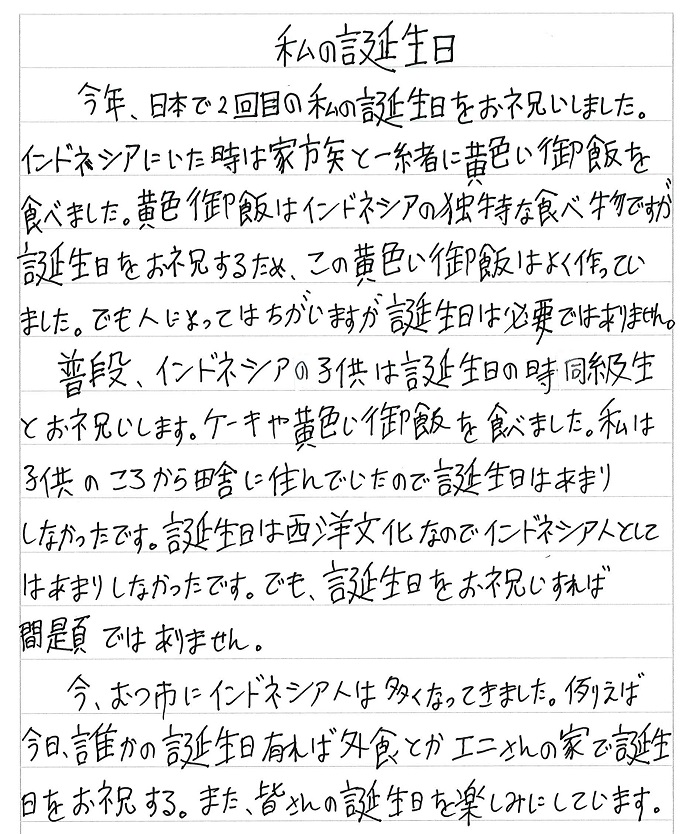 私の誕生日
今年、日本で2回目の私の誕生日をお祝いしました。
インドネシアにいた時は家族と一緒に黄色い御飯を
食べました。黄色御飯はインドネシアの独特な食べ物ですが
誕生日をお祝するため、この黄色い御飯はよく作ってい
ました。でも人によってはちがいますが誕生日は必要ではありません。
普段、インドネシアの子供は誕生日の時同級生
とお祝いします。ケーキや黄色い御飯を食べました。私は
子供のころから田舎に住んでいたので誕生日はあまり
しなかったです。誕生日は西洋文化なのでインドネシア人として
はあまりしなかったです。でも、誕生日をお祝いすれば
問題ではありません。
今、むつ市にインドネシア人は多くなってきました。例えば
今日、誰かの誕生日有れば外食とかエニさんの家で誕生
日をお祝する。また、皆さんの誕生日を楽しみにしています。